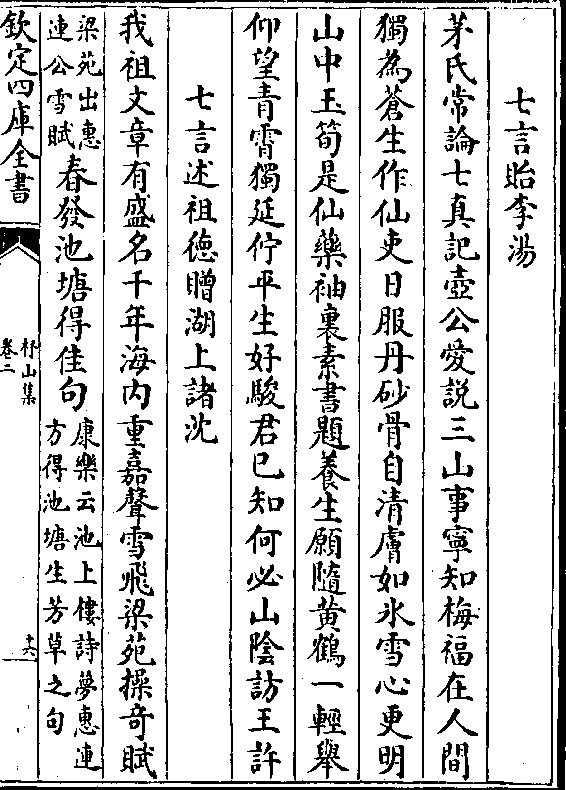 七言貽李湯
茅氏常論七真記壺公愛説三山事寧知梅福在人間
獨為蒼生作仙吏日服丹砂骨自清膚如氷雪心更明
山中玉筍是仙藥袖裏素書題養生願隨黄鶴一輕舉
仰望青霄獨延佇平生好駿君已知何必山陰訪王許
七言述祖德贈湖上諸沈
我祖文章有盛名千年海内重嘉聲雪飛梁苑操奇賦
梁苑出惠
連公雪賦
春發池塘得佳句
康樂云池上樓詩夢惠連
方得池塘生芳草之句
欽定四庫全書
杼山集
卷二
十六